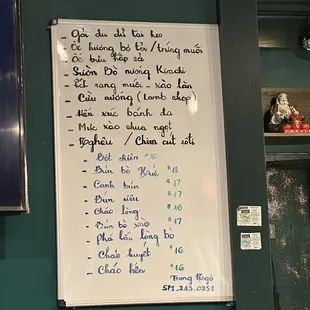 - Gỏi du đủ tai heo
- Ốc hương bơ tỏi / trứng muối
- Ốc bươu hấp sả
- Sườn Bò nướng Kimchi
- Ếch rang muối - xào lăn
- Cừu nướng (Lamb chop)
- Hến xúc bánh đa
- Mực xào chua ngọt
- Nghêu / Chim cút rôti
- Bột chiên $15
- Bún bò Huế $18
- Canh bún $17
- Bún riêu $17
- Cháo lòng $16
- Bún bò xào $17
- Phá lấu lòng bò
- Cháo huyết $16
- Cháo hến $16
Trang Ngô
571.243.0251